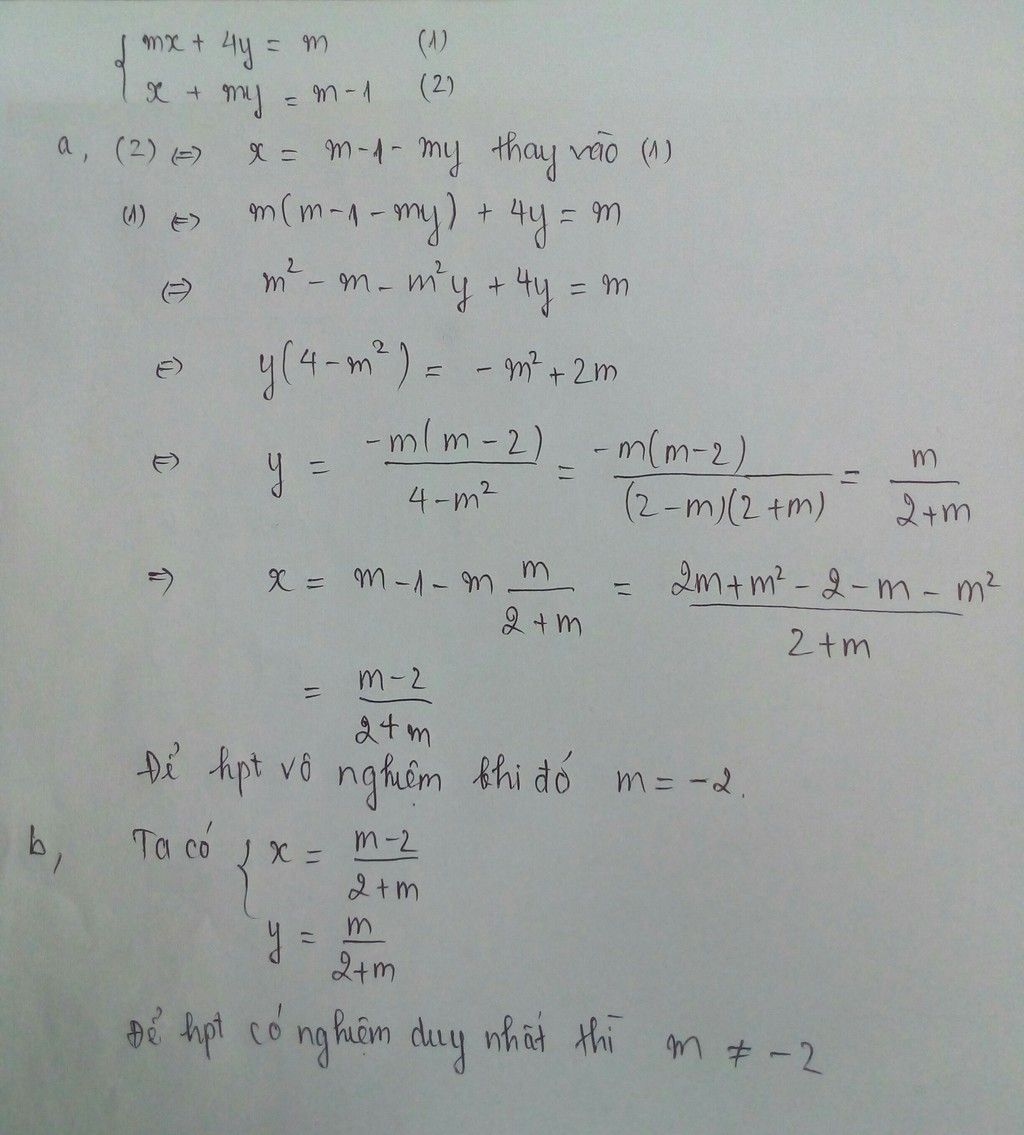 mx + 4y = m (1)
x + my = m-1 (2)
a, (2) ⇔ x = m-1-my thay vào (1)
(1) ⇔ m(m-1-my) + 4y = m
⇔ m² - m - m²y + 4y = m
⇔ y(4-m²) = -m² + 2m
⇔ y = -m(m-2)/(4-m²) = -m(m-2)/((2-m)(2+m)) = m/(2+m)
⇒ x = m-1-m m/(2+m) = (2m+m²-2-m-m²)/(2+m)
= (m-2)/(2+m)
Để hpt vô nghiệm khi đó m = -2.
b, Ta có { x = (m-2)/(2+m)
y = m/(2+m)
Để hpt có nghiệm duy nhất thì m ≠ -2